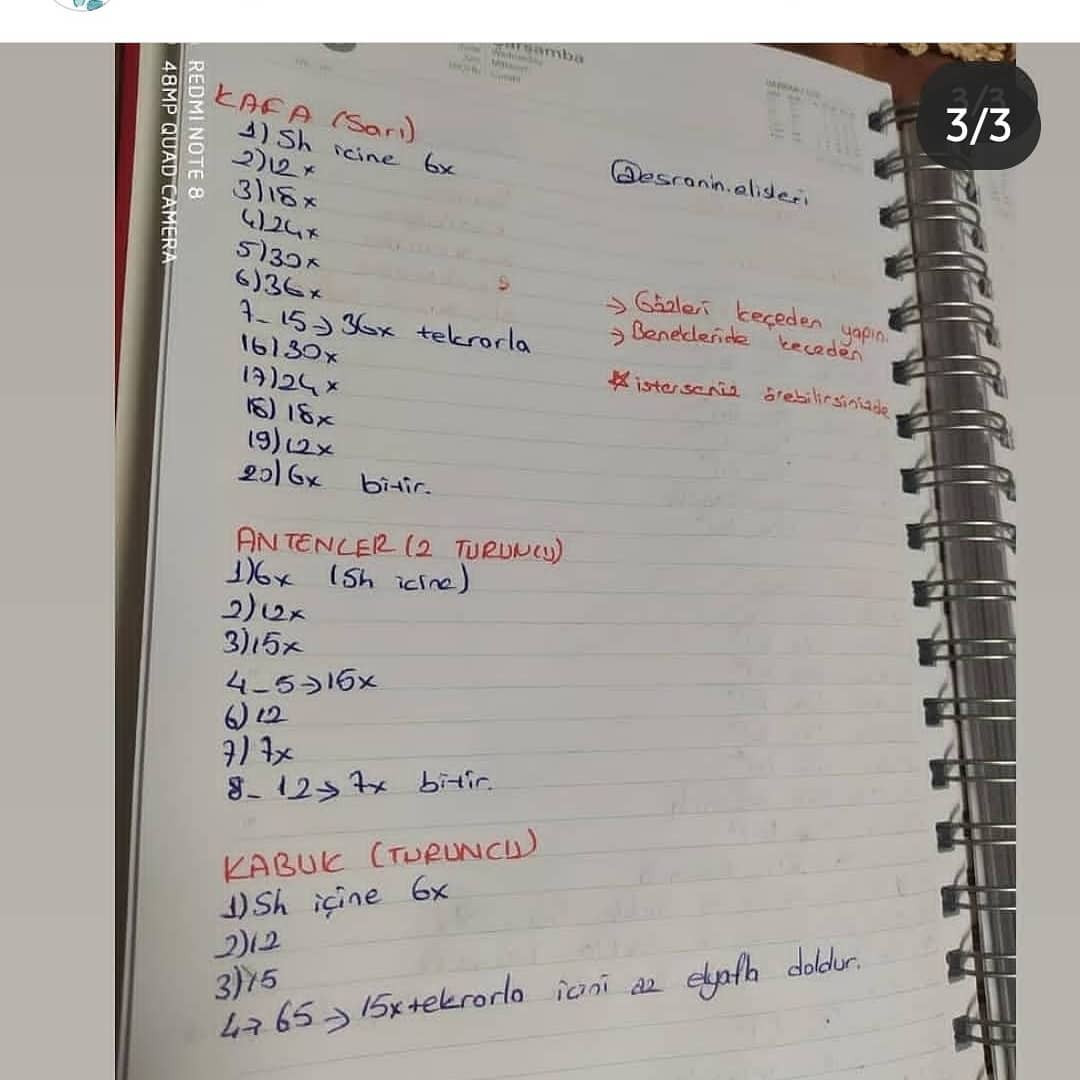 3/3
REDMI NOTE 8
48MP QUAD CAMERA
KAFA (Sarı)
1) Sh icine 6x
2) 12x
3) 18x
4) 24x
5) 30x
6) 36x
7-15 → 36x tekrarla
16) 30x
17) 24x
18) 18x
19) 12x
20) 6x bitir.
@esranin.elisleri
→ Gözleri keçeden yapın.
→ Benekleride keceden
* isterseniz örebilirsinizde
ANTENLER (2 TURUNCU)
1) 6x (Sh icine)
2) 12x
3) 15x
4-5 → 15x
6) 12
7) 7x
8-12 → 7x bitir.
KABUK (TURUNCU)
1) Sh içine 6x
2) 12
3) 15
4 → 65 → 15x tekrarla icini az elyafla doldur.